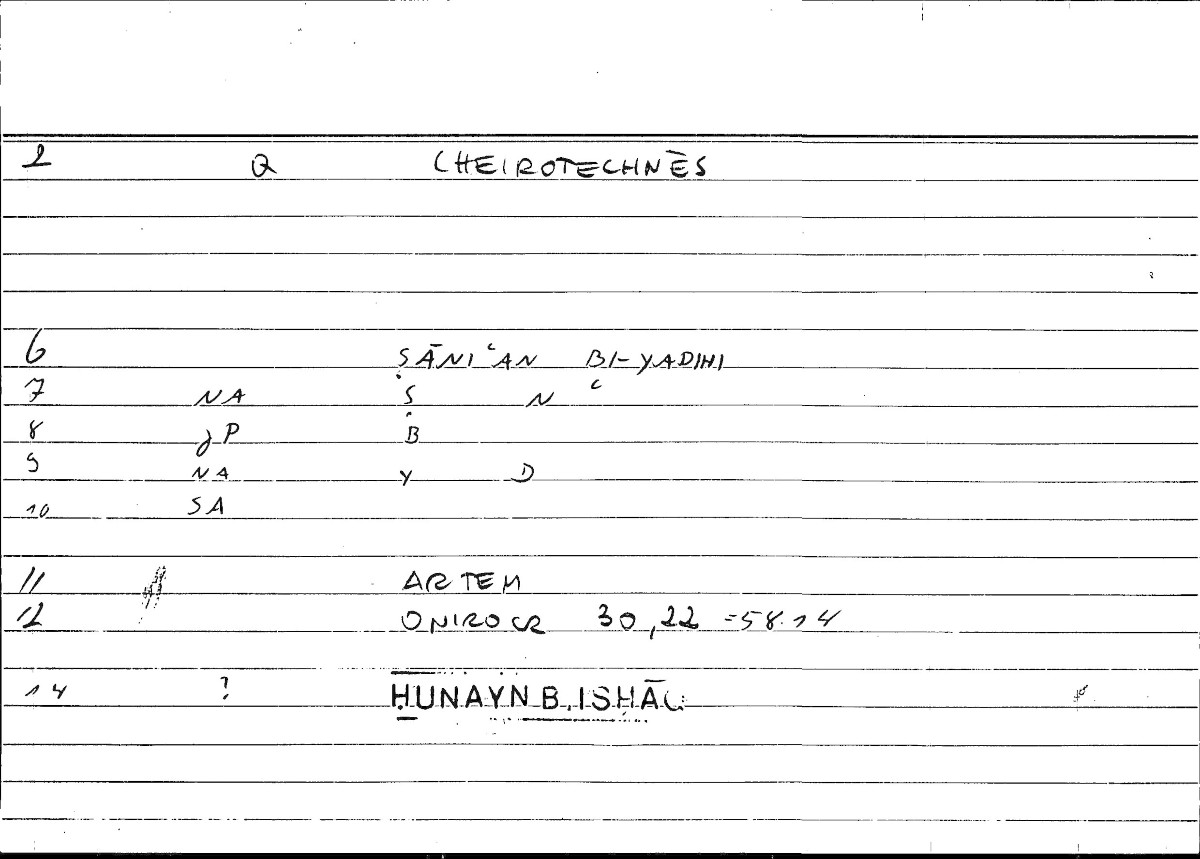 1 Q CHEIROTECHNĒS
6 ṢĀNIʿAN BI-YADIHI
7 NA Ṣ N ʿ
8 gP B
9 NA Y D
10 SA
11 ARTEM
12 ONIROCR 30,22 =58.14
14 ? ḤUNAYN B. ISḤĀQ